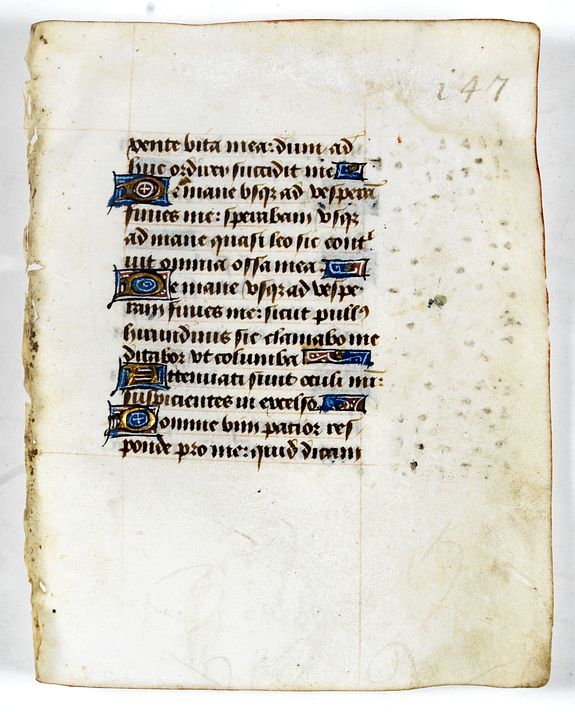 147
xente vita mea: dum ad
huc ordirer succidit me
De mane vsqꝫ ad vespera
finies me: sperabam vsqꝫ
ad mane quasi leo sic cont
uit omnia ossa mea
De mane vsqꝫ ad vespe
ram finies me: sicut pullꝰ
hirundinis sic clamabo me
ditabor vt columba
Attenuati sunt oculi mi:
suspicientes in excelso
Domine vim patior res
ponde pro me: quid dicam